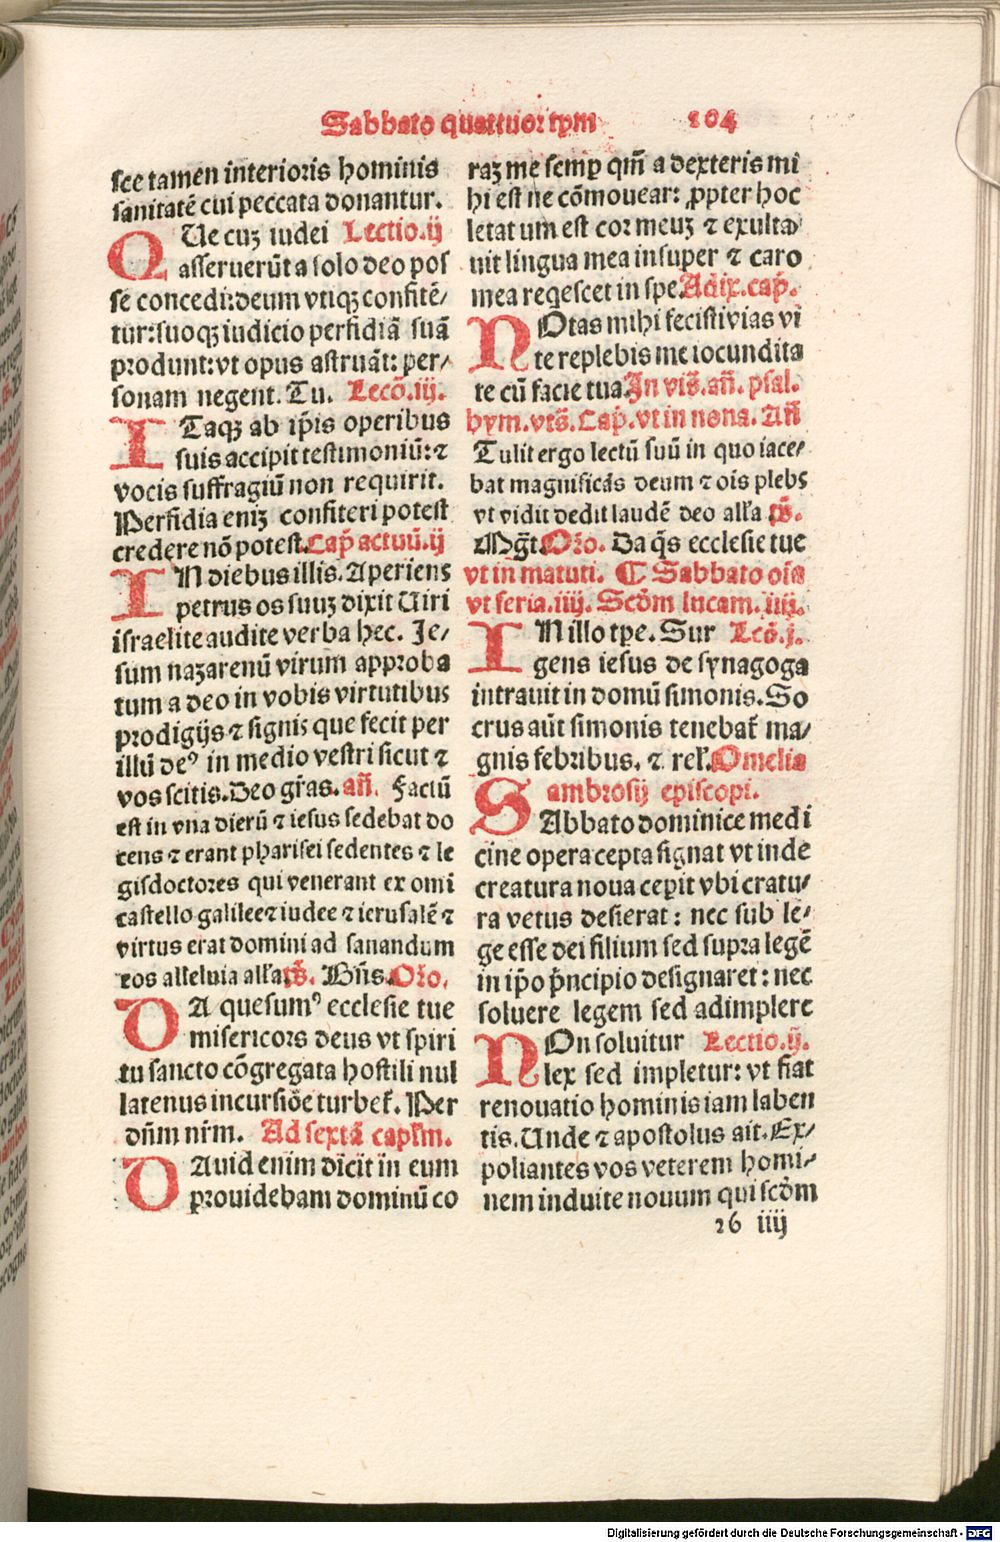 Sabbato quattuor tp̄m 104
see tamen interioris hominis
sanitatē cui peccata donantur.
QUe cuꝫ iudei Lectio.ij
asseruerūt a solo deo pos
se concedi: deum vtiqꝫ confitē⸗
tur: suoqꝫ iudicio perfidiā suā
produnt: vt opus astruāt: per⸗
sonam negent. Tu. Lecō.iij.
ITaqꝫ ab ip̄is operibus
suis accipit testimoniū: ⁊
vocis suffragiū non requirit.
Perfidia enīꝫ confiteri potest
credere nō potest. Cap̄ actuū.ij
IN diebus illis. Aperiens
petrus os suuꝫ dixit Uiri
israelite audite verba hec. Je⸗
sum nazarenū virum approba
tum a deo in vobis virtutibus
prodigijs ⁊ signis que fecit per
illū deꝰ in medio vestri sicut ⁊
vos scitis. Deo gr̄as. añ. Factū
est in vna dierū ⁊ iesus sedebat do
cens ⁊ erant pharisei sedentes ⁊ le
gisdoctores qui venerant ex omī
castello galilee ⁊ iudee ⁊ ierusalē ⁊
virtus erat domini ad sanandum
eos alleluia alľa. ꝟ. Bn̄s. Oꝛ̄o.
DA quesumꝰ ecclesie tue
misericors deus vt spiri
tu sancto cōgregata hostili nul
latenus incursiōe turbet̉. Per
dn̄m nr̄m. Ad sextā capľm.
DAuid enim dicit in eum
prouidebam dominū co
raꝫ me semꝑ qm̄ a dexteris mi
hi est ne cōmouear: ꝓpter hoc
letatum est cor meuꝫ ⁊ exulta⸗
uit lingua mea insuper ⁊ caro
mea reqescet in spe. Ad ix. cap̄.
NOtas mihi fecisti vias vi
te replebis me iocundita
te cū facie tua. Jn viś. añ. psal.
hym. vts̄. Cap̄. vt in nona. Añ
Tulit ergo lectū suū in quo iace⸗
bat magnificās deum ⁊ ois plebs
vt vidit dedit laudē deo alľa ꝟ.
Mḡt. Oꝛ̄o. Da q̄s ecclesie tue
vt in matuti. ¶ Sabbato oīa
vt feria.iiij. Scd̄m lucam. iiij.
IN illo tp̄e. Sur Lcō.j.
gens iesus de synagoga
intrauit in domū simonis. So
crus aūt simonis tenebat̉ ma⸗
gnis febribus. ⁊ rel̉. Omelia
S ambrosij episcopi.
Abbato dominice medi
cine opera cepta signat vt inde
creatura noua cepit vbi cratu⸗
ra vetus desierat: nec sub le⸗
ge esse dei filium sed supra legē
in ip̄o p̄ncipio designaret: nec
soluere legem sed adimplere
NOn soluitur Lectio.ij.
lex sed impletur: vt fiat
renouatio hominis iam laben
tis. Unde ⁊ apostolus ait. Ex⸗
poliantes vos veterem homi⸗
nem induite nouum qui scd̄m
26 iiij
Digitalisierung gefördert durch die Deutsche Forschungsgemeinschaft - DFG